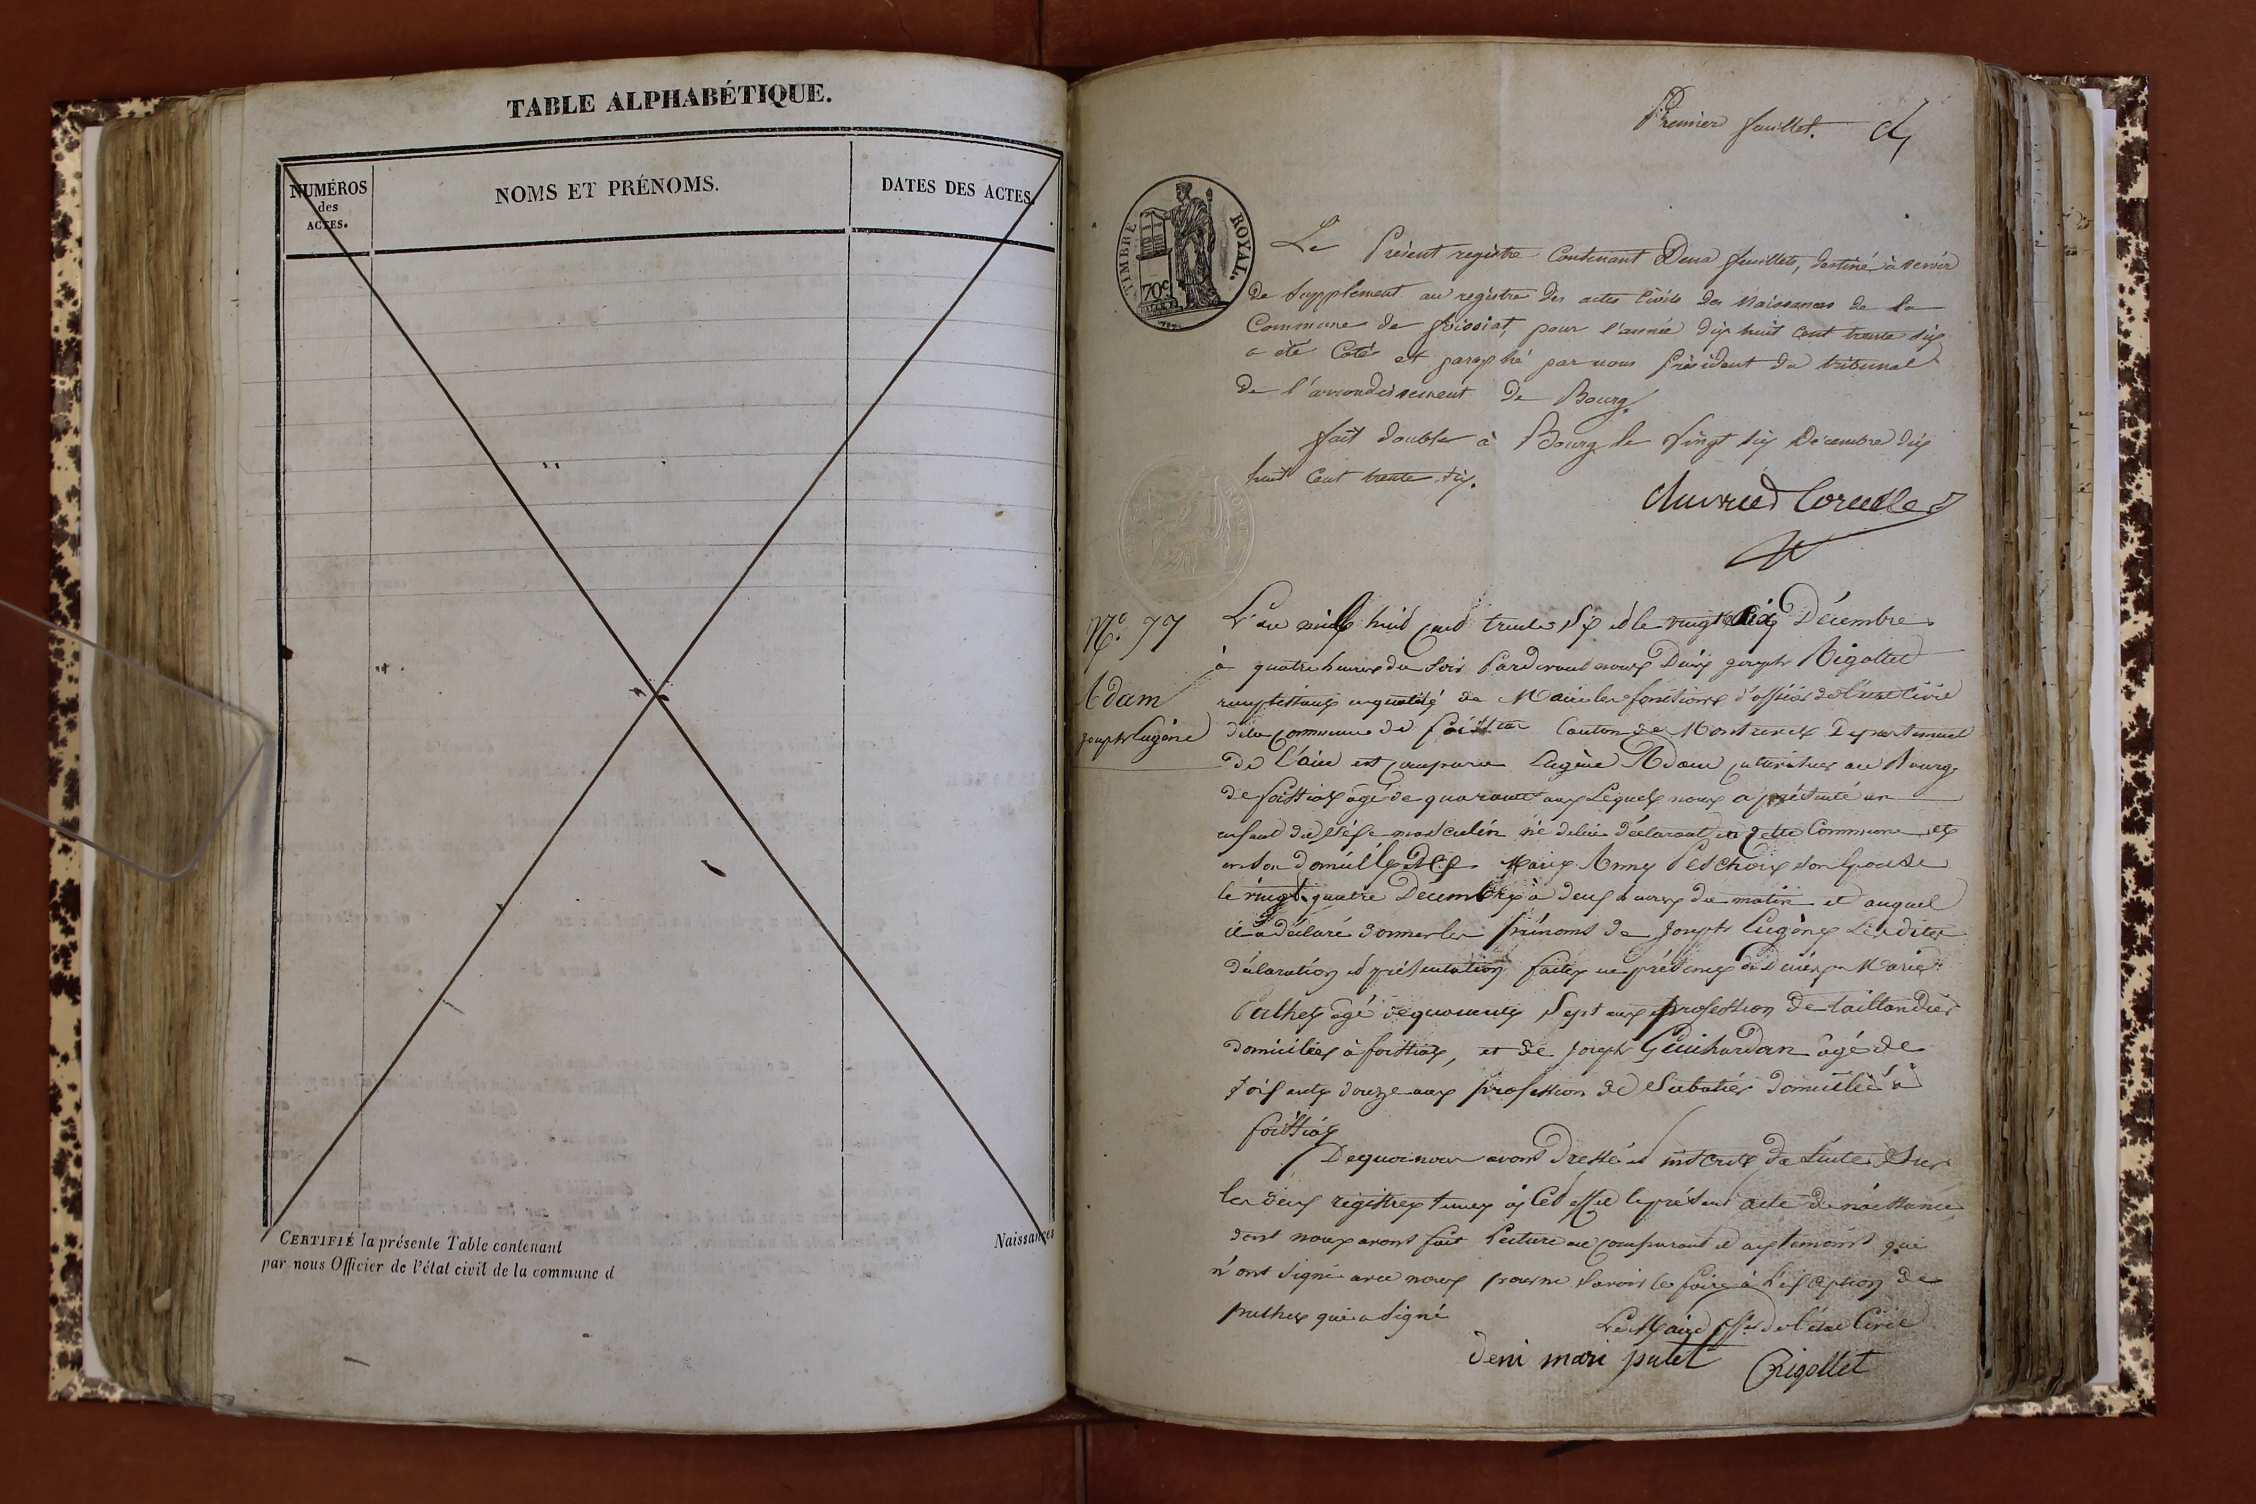 TABLE ALPHABÉTIQUE.
NUMÉROS
des
ACTES.
NOMS ET PRÉNOMS.
DATES DES ACTES.
CERTIFIÉ la présente Table contenant
par nous Officier de l'état civil de la commune d
Naissances
Premier feuillet.
TIMBRE ROYAL.
70c
Le Présent registre Contenant Deux feuillets, destiné à servir
de Supplément au registre des actes Civils des Naissances de la
Commune de foissiat, pour l'année dix huit cent trente six
a été Coté et paraphé par nous Président du tribunal
de l'arrondissement de Bourg.
fait double à Bourg le Vingt six Décembre dix
huit Cent trente six.
N.° 77
Adam
joseph Eugène
L'an mille huit cent trente six et le vingt six Décembre
à quatre heures du Soir Pardevant nous Denis joseph Rigollet
remplissant en qualité de Maire les fonctions d'officier de l'état Civil
de la commune de foissiat Canton de Montrevel Departement
de l'ain est comparu Eugène Adam cultivateur au Bourg
de foissiat âgé de quarante ans Lequel nous a présenté un
enfant du séxe masculin né de lui déclarant en cette Commune et
en son domicile et de Marie Anne son Epouse
le vingt quatre Décembre à deux heures du matin et auquel
il a déclaré donner les prénoms de Joseph Eugène Lesdites
déclaration et présentation faites en présence de Denis Marie
Puthet âgé de quarante Sept ans profession de taillandier
domicilié à foissiat, et de joseph Guichardan âgé de
soixante douze ans profession de Sabotier domicilié à
foissiat
De quoi nous avons Dressé et inscrit de suite Sur
les deux registres tenus à cet effet le présent acte de naissance
dont nous avons fait Lecture au comparant et aux temoins qui
n'ont signé avec nous pour ne Savoir le faire à l'exception de
puthet qui a signé
Le Maire off. de l'état Civil
deni mari putet
Rigollet